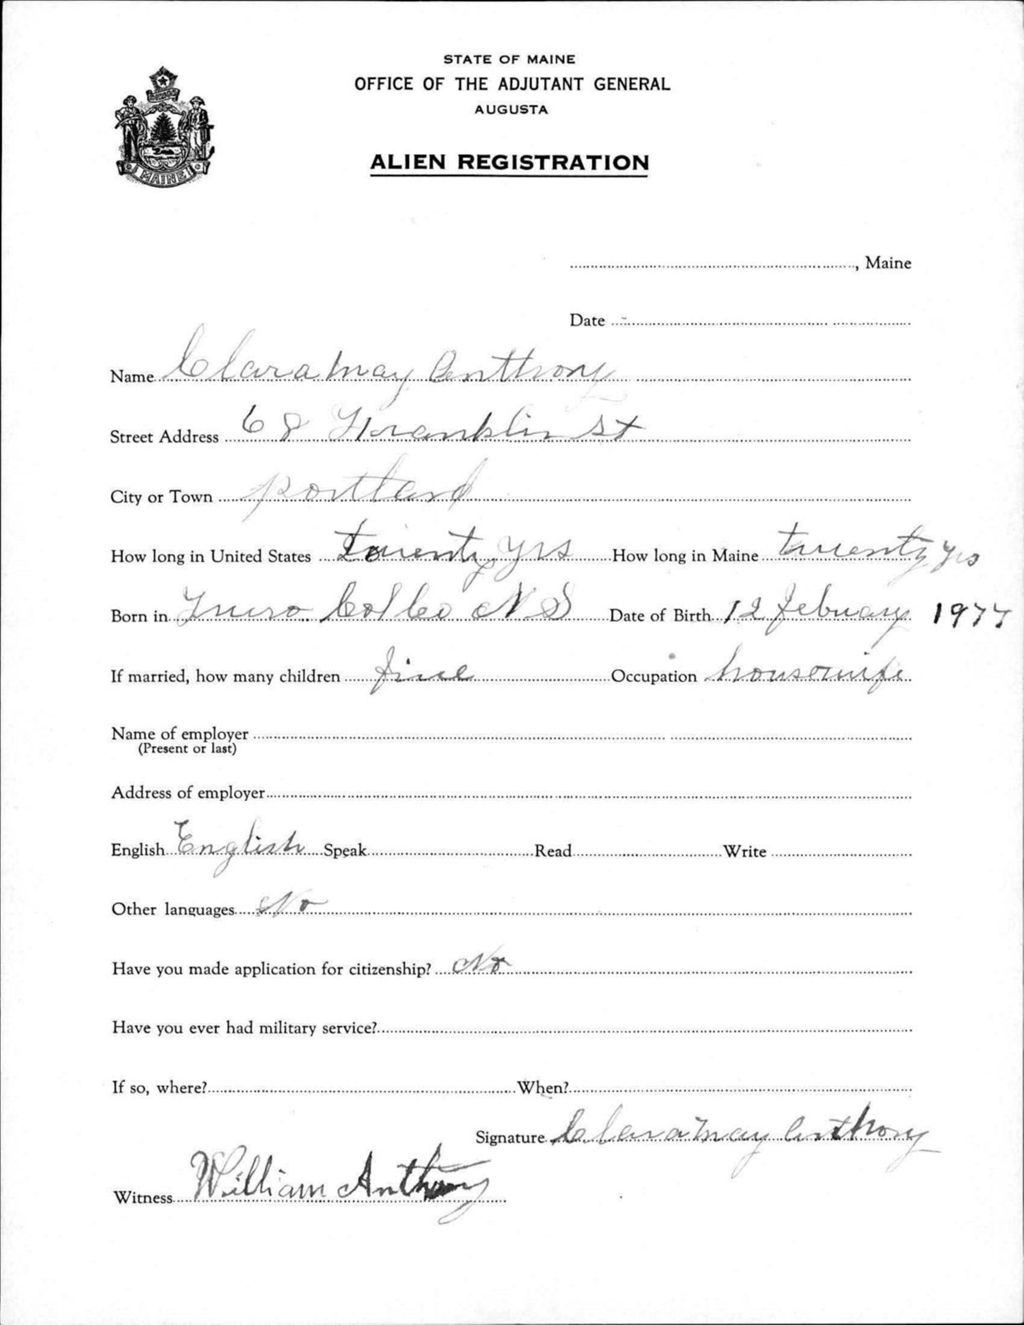 STATE OF MAINE
OFFICE OF THE ADJUTANT GENERAL
AUGUSTA
ALIEN REGISTRATION
MAINE
, Maine
Date
Name Clara May Anthony
Street Address 68 Franklin St
City or Town Portland
How long in United States twenty yrs How long in Maine twenty yrs
Born in Col Co N S Date of Birth 12 febuary 1977
If married, how many children five Occupation housewife
Name of employer
(Present or last)
Address of employer
English English Speak Read Write
Other languages No
Have you made application for citizenship? No
Have you ever had military service?
If so, where? When?
Signature Clara May Anthony
Witness William Anthony